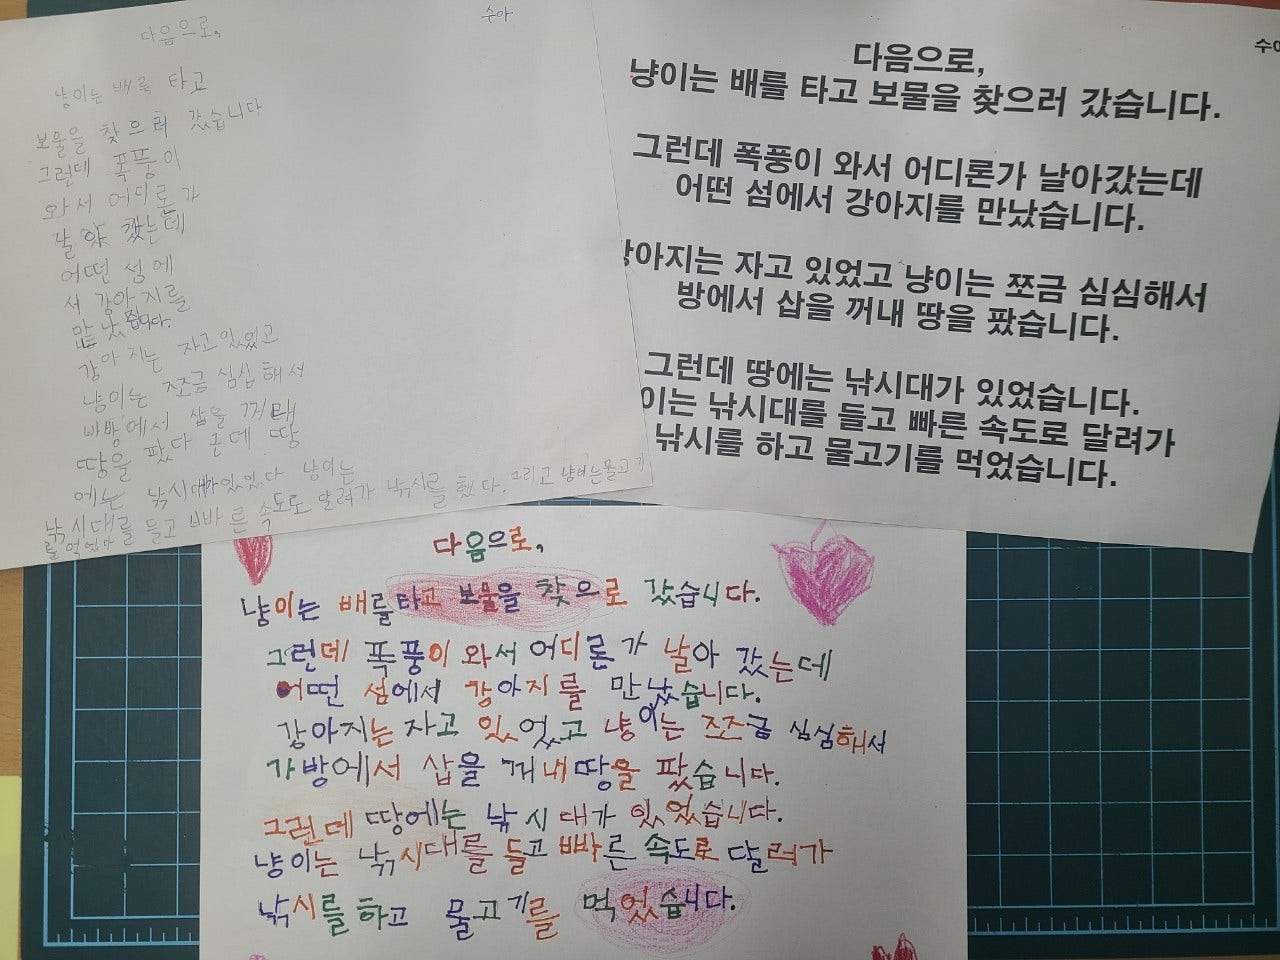 수아
다음으로,
냥이는 배를 타고
보물을 찾으러 갔습니다
그런데 폭풍이
와서 어디론가
날아 갔는데
어떤 섬에
서 강아지를
만났습니다.
강아지는 자고있었고
냥이는 쪼금 심심해서
방에서 삽을 꺼내
땅을 팠다 근데 땅
에는 낚시대가있었다 냥이는
낚시대를 들고 빠른 속도로 달려가 낚시를 했다. 그리고 냥이는물고기
를 먹었다
수아
다음으로,
냥이는 배를 타고 보물을 찾으러 갔습니다.
그런데 폭풍이 와서 어디론가 날아갔는데
어떤 섬에서 강아지를 만났습니다.
강아지는 자고 있었고 냥이는 쪼금 심심해서
방에서 삽을 꺼내 땅을 팠습니다.
그런데 땅에는 낚시대가 있었습니다.
이는 낚시대를 들고 빠른 속도로 달려가
낚시를 하고 물고기를 먹었습니다.
다음으로,
냥이는 배를타고 보물을 찾으로 갔습니다.
그런데 폭풍이 와서 어디론가 날아 갔는데
어떤 섬에서 강아지를 만났습니다.
강아지는 자고 있었고 냥이는 쪼금 심심해서
가방에서 삽을 꺼내 땅을 팠습니다.
그런데 땅에는 낚시대가 있었습니다.
냥이는 낚시대를 들고 빠른 속도로 달려가
낚시를 하고 물고기를 먹었습니다.